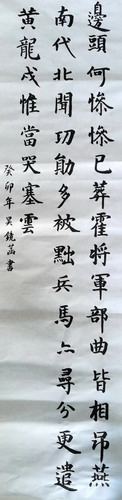 邊頭何慘慘已葬霍將軍部曲皆相吊燕
南代北聞功勛多被黜兵馬亦尋分更遣
黃龍戍惟當哭塞雲
癸卯年吳鏡菡書